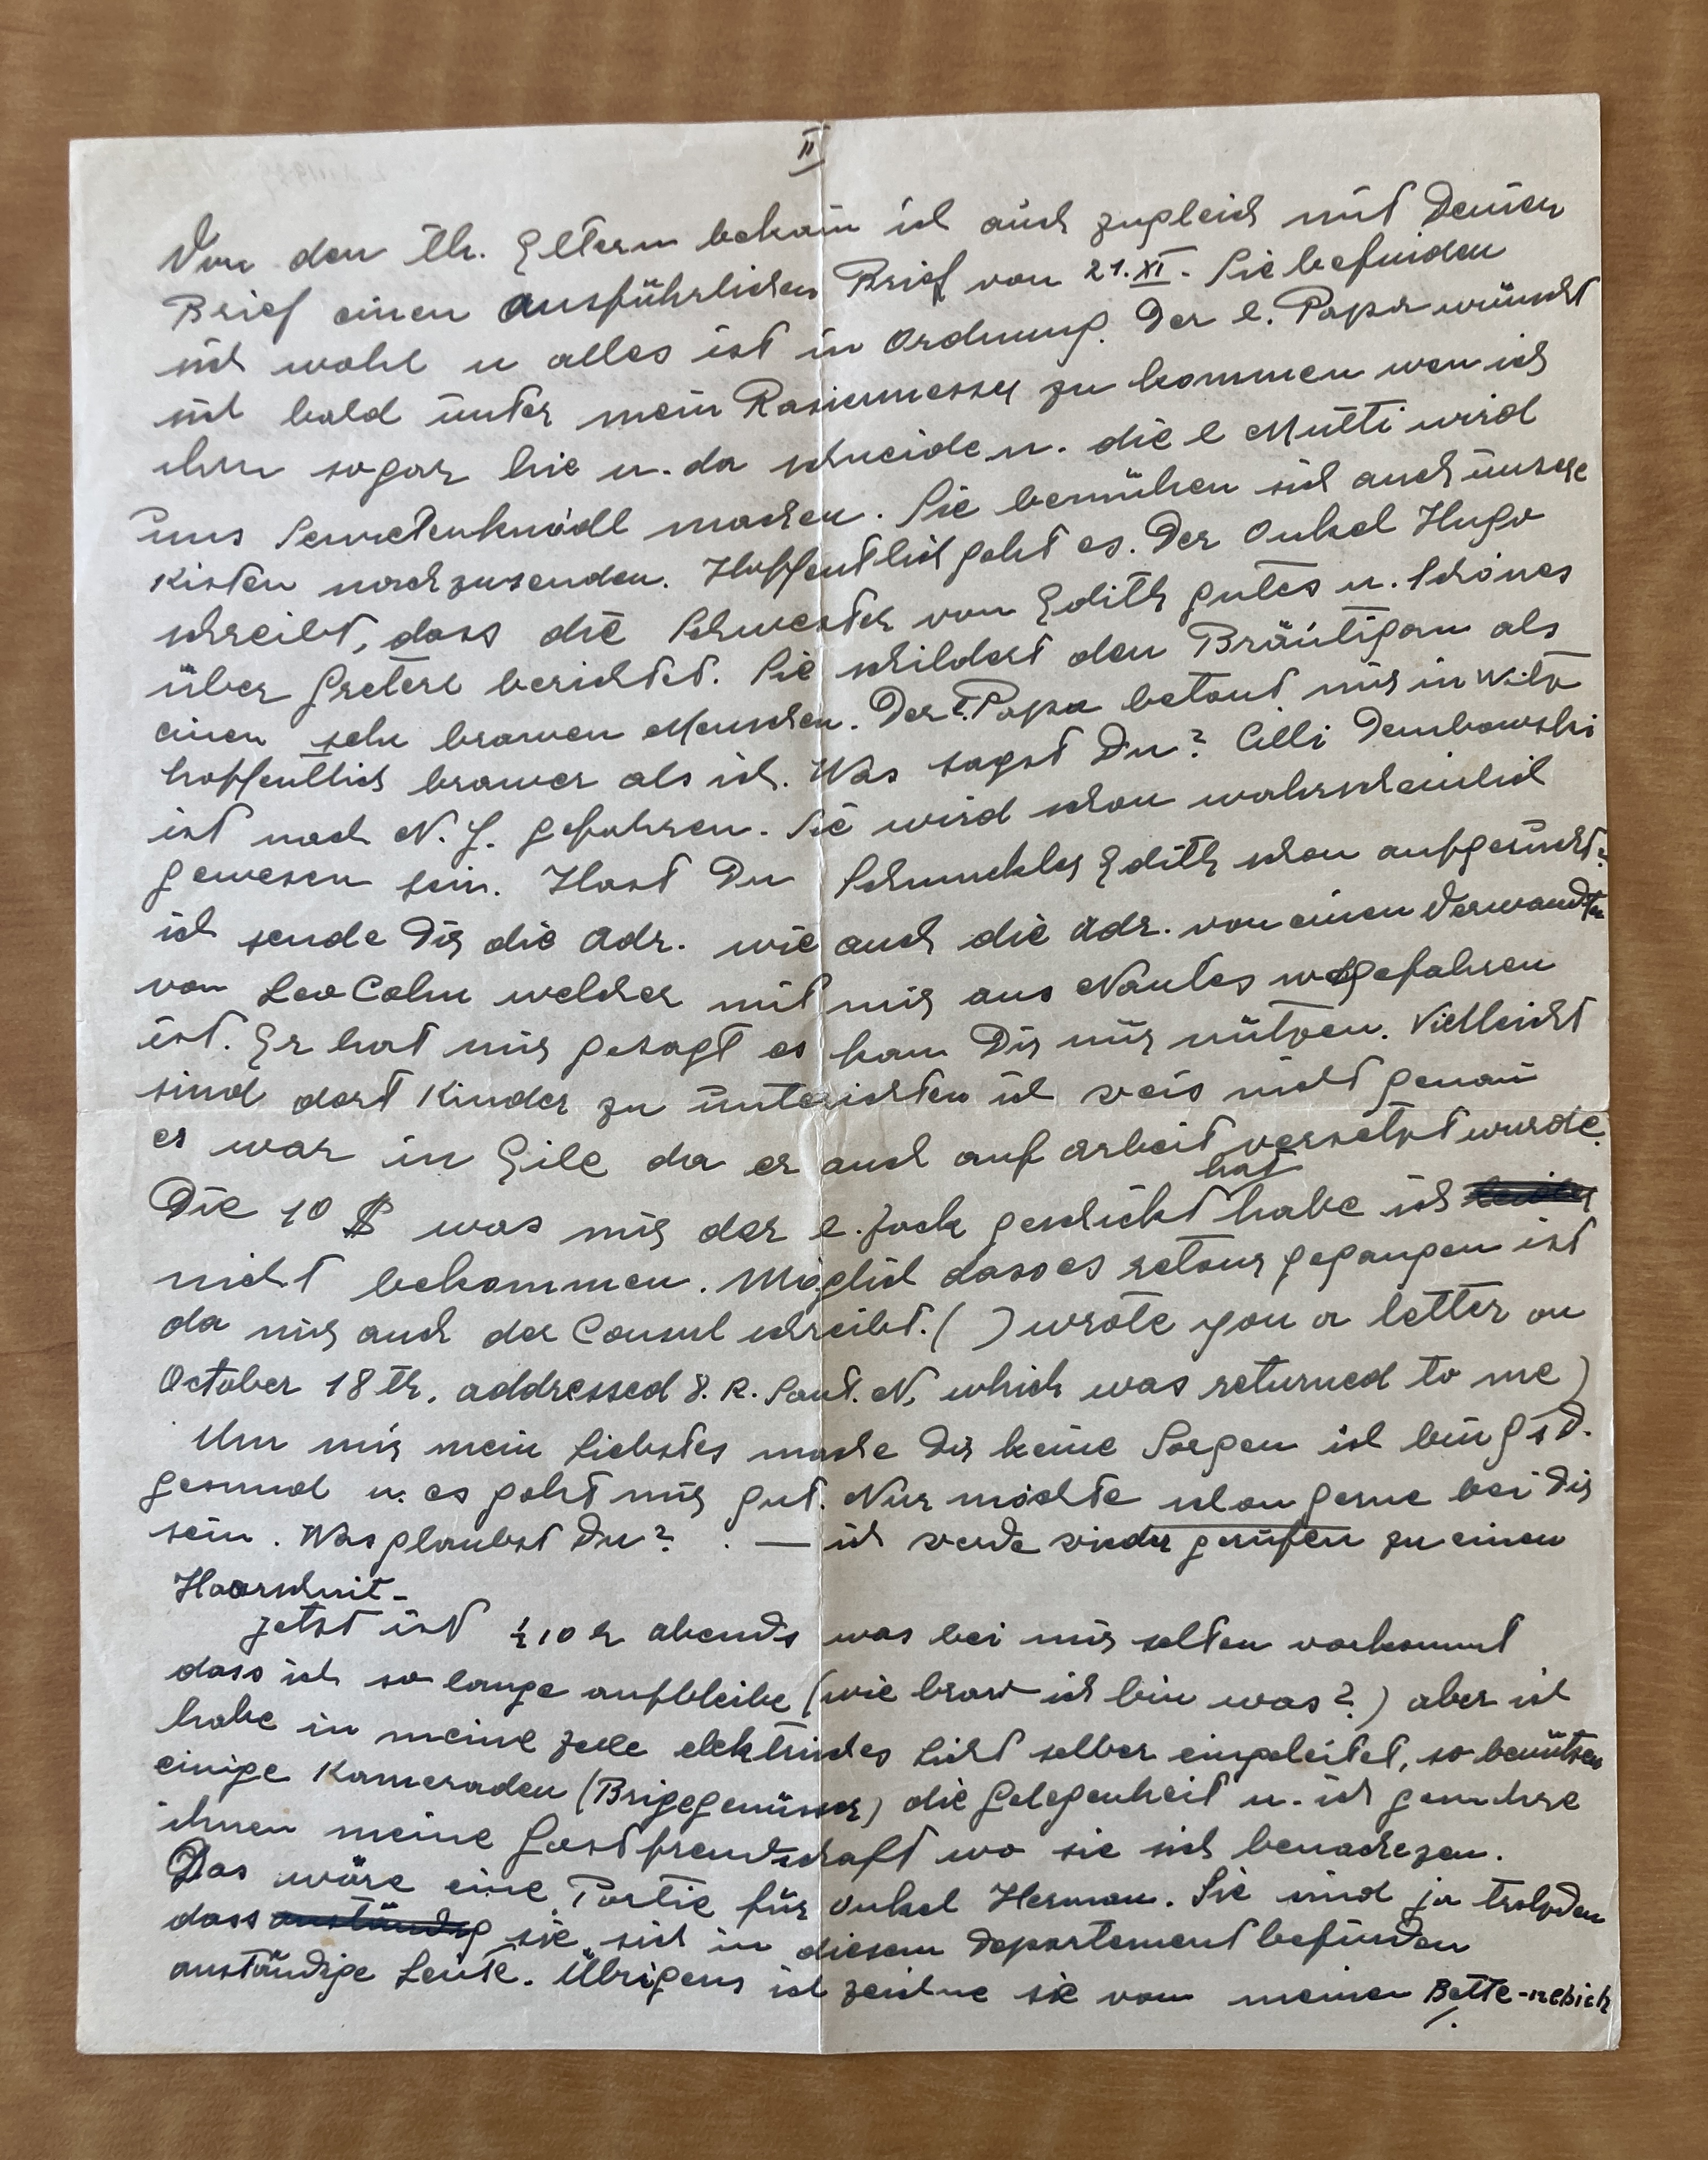 II
Von den th. Eltern bekam ich auch zugleich mit Deinen
Brief einen ausführlichen Brief von 21.XI. Sie befinden
sich wohl u alles ist in Ordnung. Der l. Papa wünscht
sich bald unter mein Rasiermesser zu kommen wen ich
ihm sogar hie u. da schneide u. die l Mutti wird
uns Servietenknödl machen. Sie bemühen sich auch unsere
Kisten nachzusenden. Hoffentlich geht es. Der Onkel Hugo
schreibt, dass die Schwester von Edith gutes u. schönes
über Greterl berichtet. Sie schildert den Bräutigam als
einen sehr brawen Menschen. Der l. Papa betont mir in Witz
hoffentlich brawer als ich. Was sagst Du? Cilli Dembowski
ist nach N. J. gefahren. Sie wird schon wahrscheinlich
gewesen sein. Hast Du Schmuckler Edith schon aufgesucht?
ich sende Dir die Adr. wie auch die Adr. von einen Verwandten
von Leo Cohn welcher mit mir aus Nantes weggefahren
ist. Er hat mir gesagt es kan Dir nur nützen. Vielleicht
sind dort Kinder zu unterichten ich weis nicht genau
es war in Eile da er auch auf arbeit versetzt wurde.
Die 10 $ was mir der l. Jack geschickt hat habe ich
nicht bekommen. Möglich dass es retour gegangen ist
da mir auch der Consul schreibt. ( ) wrote you a letter on
October 18 th. addressed 8. R. Saut. N, which was returned to me)
Um mir mein Liebstes mache Dir keine Sorgen ich bin G s D.
gesund u. es geht mir gut. Nur möchte schon gerne bei Dir
sein. Was glaubst Du? . — ich werde wieder gerufen zu einen
Haarschnit-
Jetzt ist ½10 h abends was bei mir selten vorkommt
dass ich so lange aufbleibe (wie braw ich bin was?) aber ich
habe in meine Zelle elektrisches Licht selber eingeleitet, so benützen
einige Kameraden (Brigegenüsser) die Gelegenheit u. ich gewähre
ihnen meine Gastfreundschaft wo sie sich benachezen.
Das wäre eine Partie für Onkel Herman. Sie sind ja trotzden
dass anständig sie sich in diesem Departement befinden
anständige Leute. Übrigens ich zeichne sie von meinen Bette-nebich